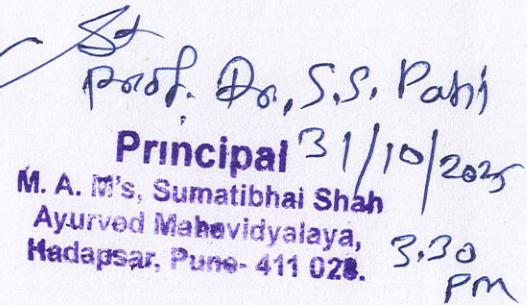 Prof. Dr. S.S. Patil
Principal 31/10/2025
M. A. M's, Sumatibhai Shah
Ayurved Mahavidyalaya,
Hadapsar, Pune- 411 028.
3.30
pm